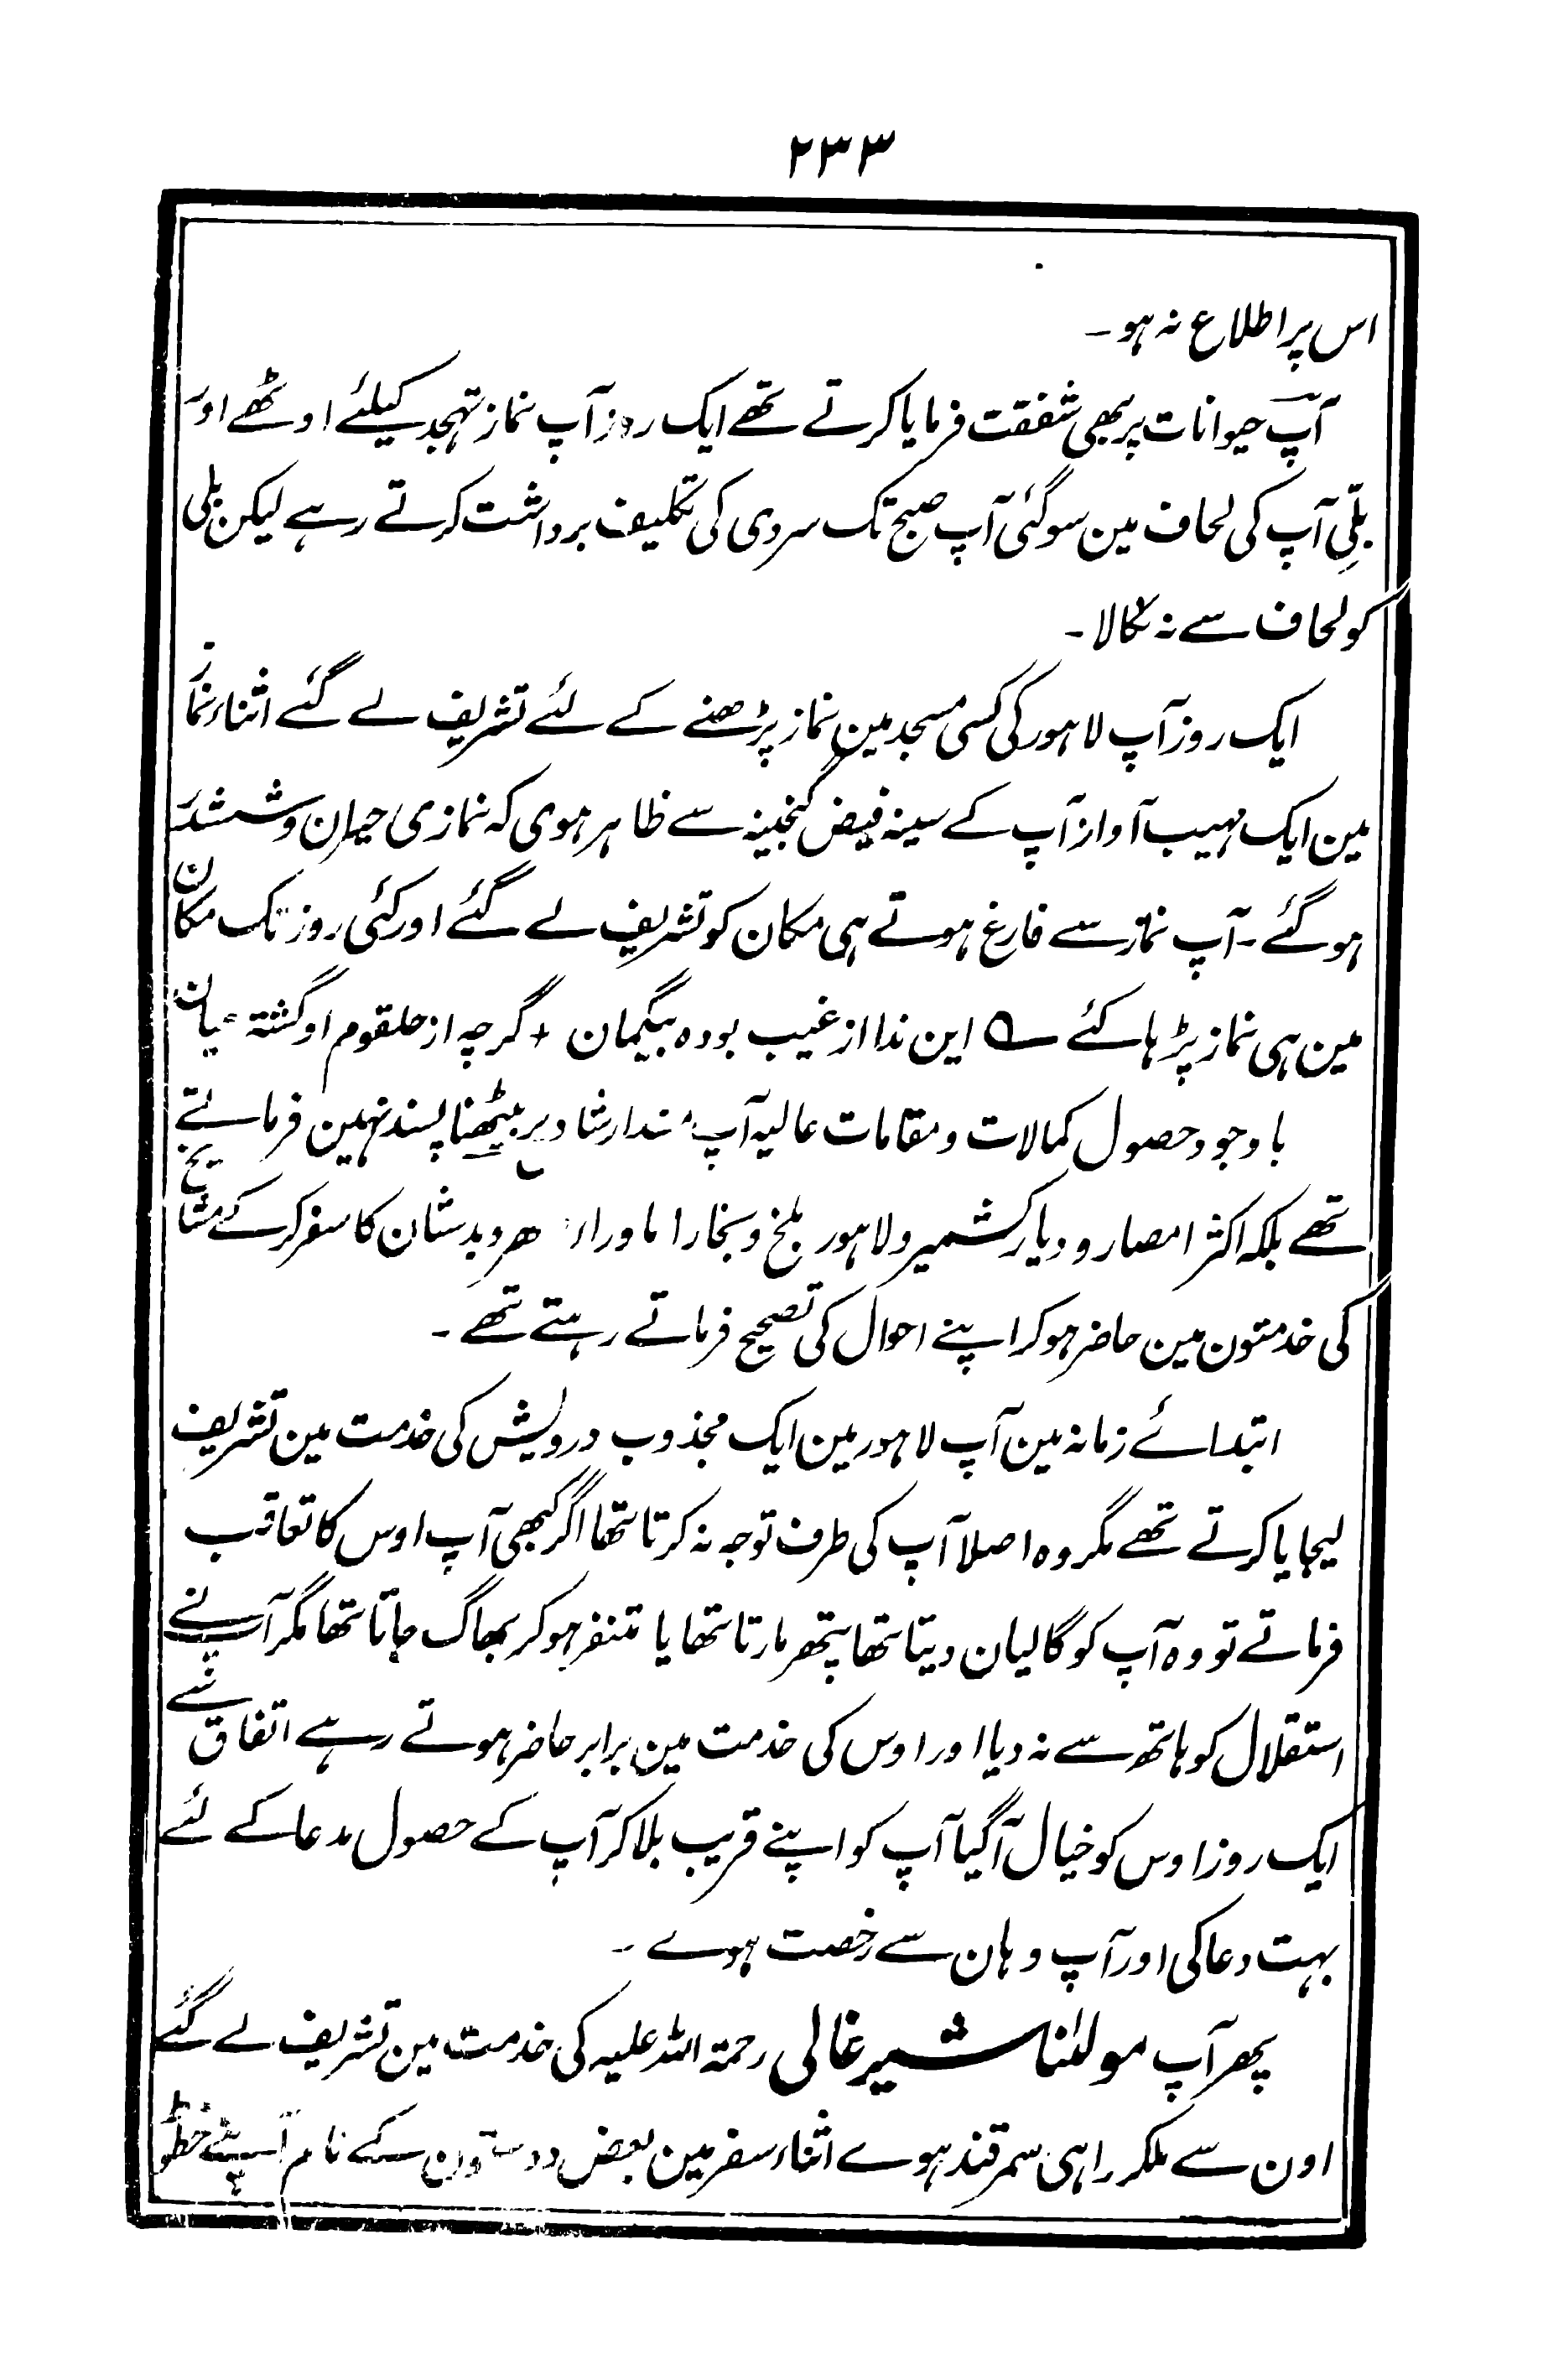 ۲۳۳
اس پر اطلاع نہ ہو۔
آپ حیوانات پر بھی شفقت فرمایا کرتے تھے ایک روز آپ نماز تہجد کیلئے اوٹھے اور
بلّی آپ کی لحاف مین سو گئی آپ صبح تک سردی کی تکلیف برداشت کرتے رہے لیکن بلی
کو لحاف سے نہ نکالا۔
ایک روز آپ لاہور کی کسی مسجد مین نماز پڑھنے کے لئے تشریف لے گئے اثناء نماز
مین ایک مہیب آواز آپ کے سینہ فیض گنجینہ سے ظاہر ہوی کہ نمازی حیران و ششدر
ہو گئے۔ آپ نماز سے فارغ ہوتے ہی مکان کو تشریف لے گئے اور کئی روز تک مکان
مین ہی نماز پڑہا کئے ؎ این ندا از غیب بودہ بیگمان + گرچہ از حلقوم او گشتہ عیان
باوجود حصول کمالات و مقامات عالیہ آپ مسند ارشاد پر بیٹھنا پسند نہین فرماتے
تھے بلکہ اکثر امصار و دیار کشمیر و لاہور بلخ و بخارا ماوراء ہر و بدشان کا سفر کر کے مشایخ
کی خدمتون مین حاضر ہو کر اپنے احوال کی تصحیح فرماتے رہتے تھے۔
ابتدائے زمانہ مین آپ لاہور مین ایک مجذوب درویش کی خدمت مین تشریف
لیجایا کرتے تھے مگر وہ اصلا آپ کی طرف توجہ نہ کرتا تھا اگر کبھی آپ اوس کا تعاقب
فرماتے تو وہ آپ کو گالیان دیتا تھا پتھر مارتا تھا یا متنفر ہو کر بھاگ جاتا تھا مگر آپ نے
استقلال کو ہاتھ سے نہ دیا اور اوس کی خدمت مین برابر حاضر ہوتے رہے اتفاق سے
ایک روز اوس کو خیال آ گیا آپ کو اپنے قریب بلا کر آپ کے حصول مدعا کے لئے
بہت دعا کی اور آپ وہان سے رخصت ہوے۔
پھر آپ مولٰنا شیر غالی رحمۃ اللہ علیہ کی خدمت مین تشریف لے گئے
اون سے ملکر راہی سمرقند ہوے اثناء سفر مین بعض دوستون کے نام آپ نے خطوط